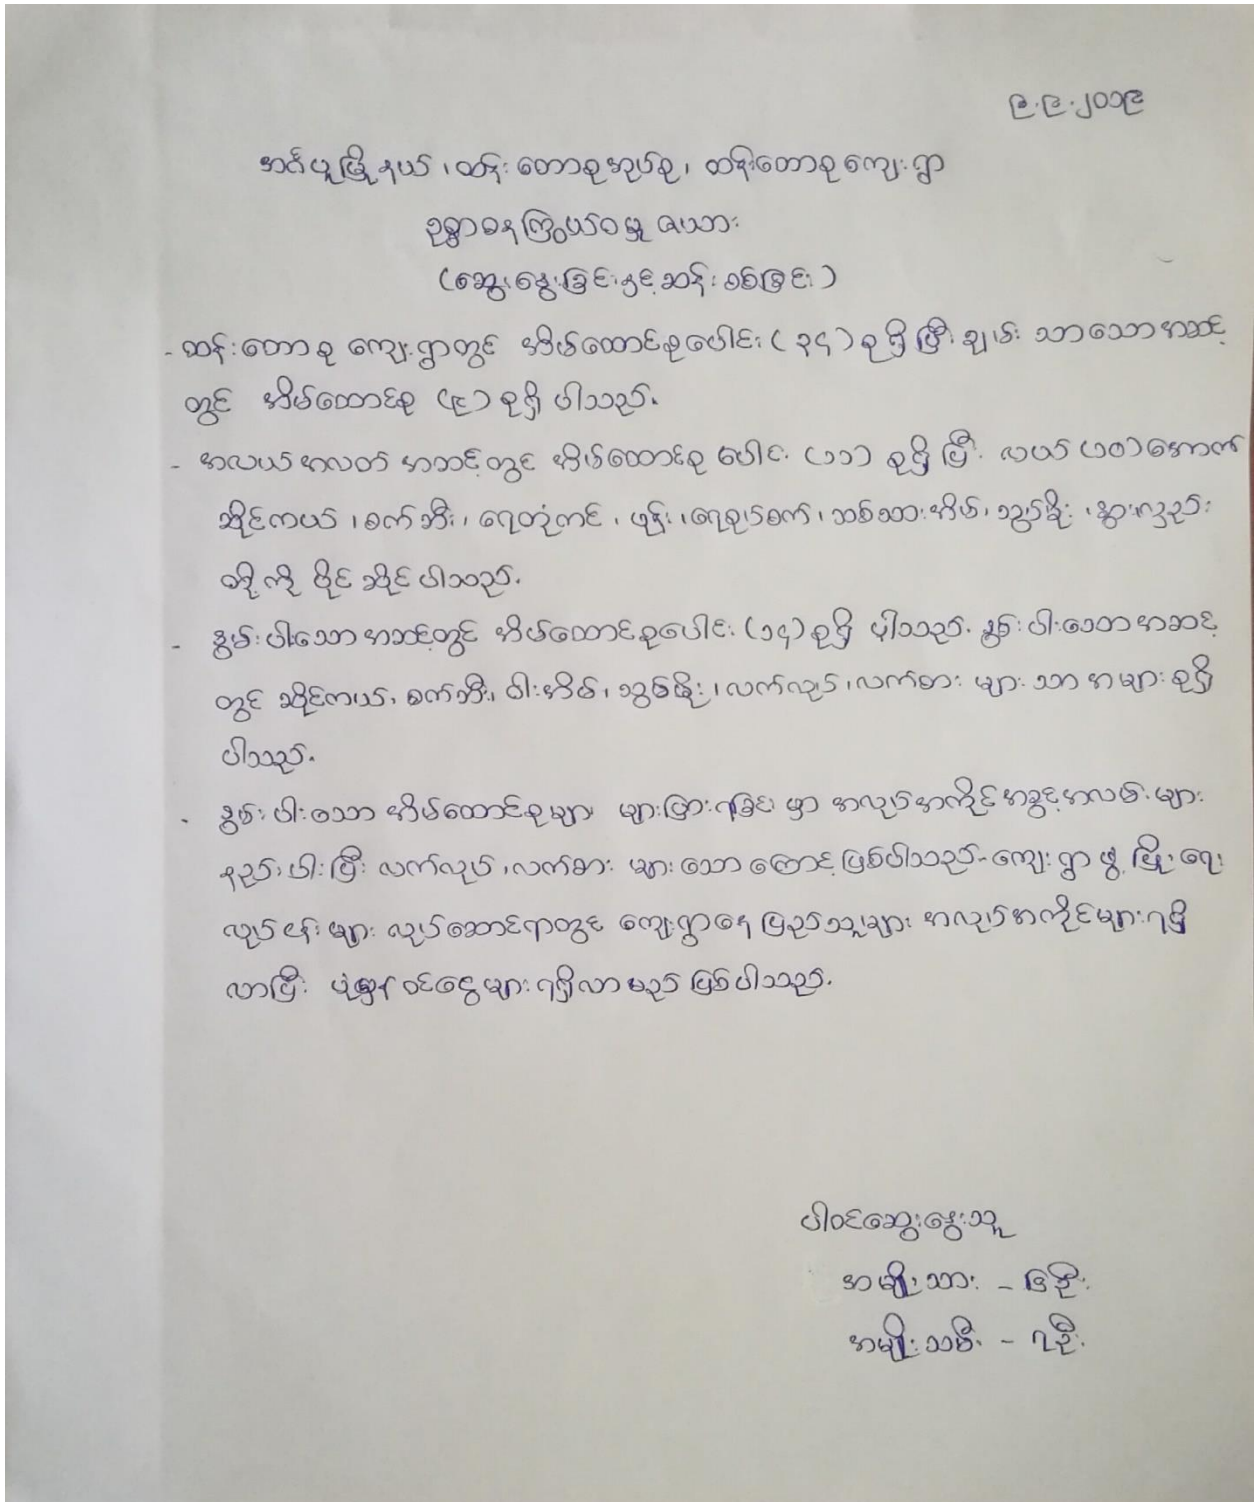 ၉.၉.၂၀၁၉
အင်္ဂပူမြို့နယ်၊ ထန်းတောစုအုပ်စု၊ ထန်းတောစုကျေးရွာ
ဥစ္စာဓနကြွယ်ဝမှုဇယား
(ဆွေးနွေးခြင်းနှင့်ဆန်းစစ်ခြင်း)
- ထန်းတောစု ကျေးရွာတွင် အိမ်ထောင်စုပေါင်း (၃၄) စုရှိပြီး ချမ်းသာသောအဆင့်
တွင် အိမ်ထောင်စု (၉) စုရှိပါသည်.
- အလယ်အလတ် အဆင့်တွင် အိမ်ထောင်စုပေါင်း (၁၁) စုရှိပြီး လယ် (၁၀) အောက်
ဆိုင်ကယ်၊ စက်ဘီး၊ ရေတုံကင်၊ ဖုန်း၊ ရေစုပ်စက်၊ သစ်သားအိမ်၊ သွပ်မိုး၊ နွား၊ လှည်း
တို့ကို ပိုင်ဆိုင်ပါသည်.
- နွမ်းပါးသောအဆင့်တွင် အိမ်ထောင်စုပေါင်း (၁၄) စုရှိ ပါသည်. နွမ်းပါးသောအဆင့်
တွင် ဆိုင်ကယ်၊ စက်ဘီး၊ ဝါးအိမ်၊ သွပ်မိုး၊ လက်လုပ်၊ လက်စား များသာ အများစုရှိ
ပါသည်.
- နွမ်းပါးသော အိမ်ထောင်စုများ များပြားရခြင်းမှာ အလုပ်အကိုင်အခွင့်အလမ်းများ
နည်းပါးပြီး လက်လုပ်၊ လက်စား များသောကြောင့်ဖြစ်ပါသည်- ကျေးရွာဖွံ့ဖြိုးရေး
လုပ်ငန်းများ လုပ်ဆောင်ရာတွင် ကျေးရွာနေပြည်သူများ အလုပ်အကိုင်များရရှိ
လာပြီး ပုံမှန်ဝင်ငွေများရရှိလာမည် ဖြစ်ပါသည်.
ပါဝင်ဆွေးနွေးသူ
အမျိုးသား - ၆ဦး
အမျိုးသမီး - ၇ဦး